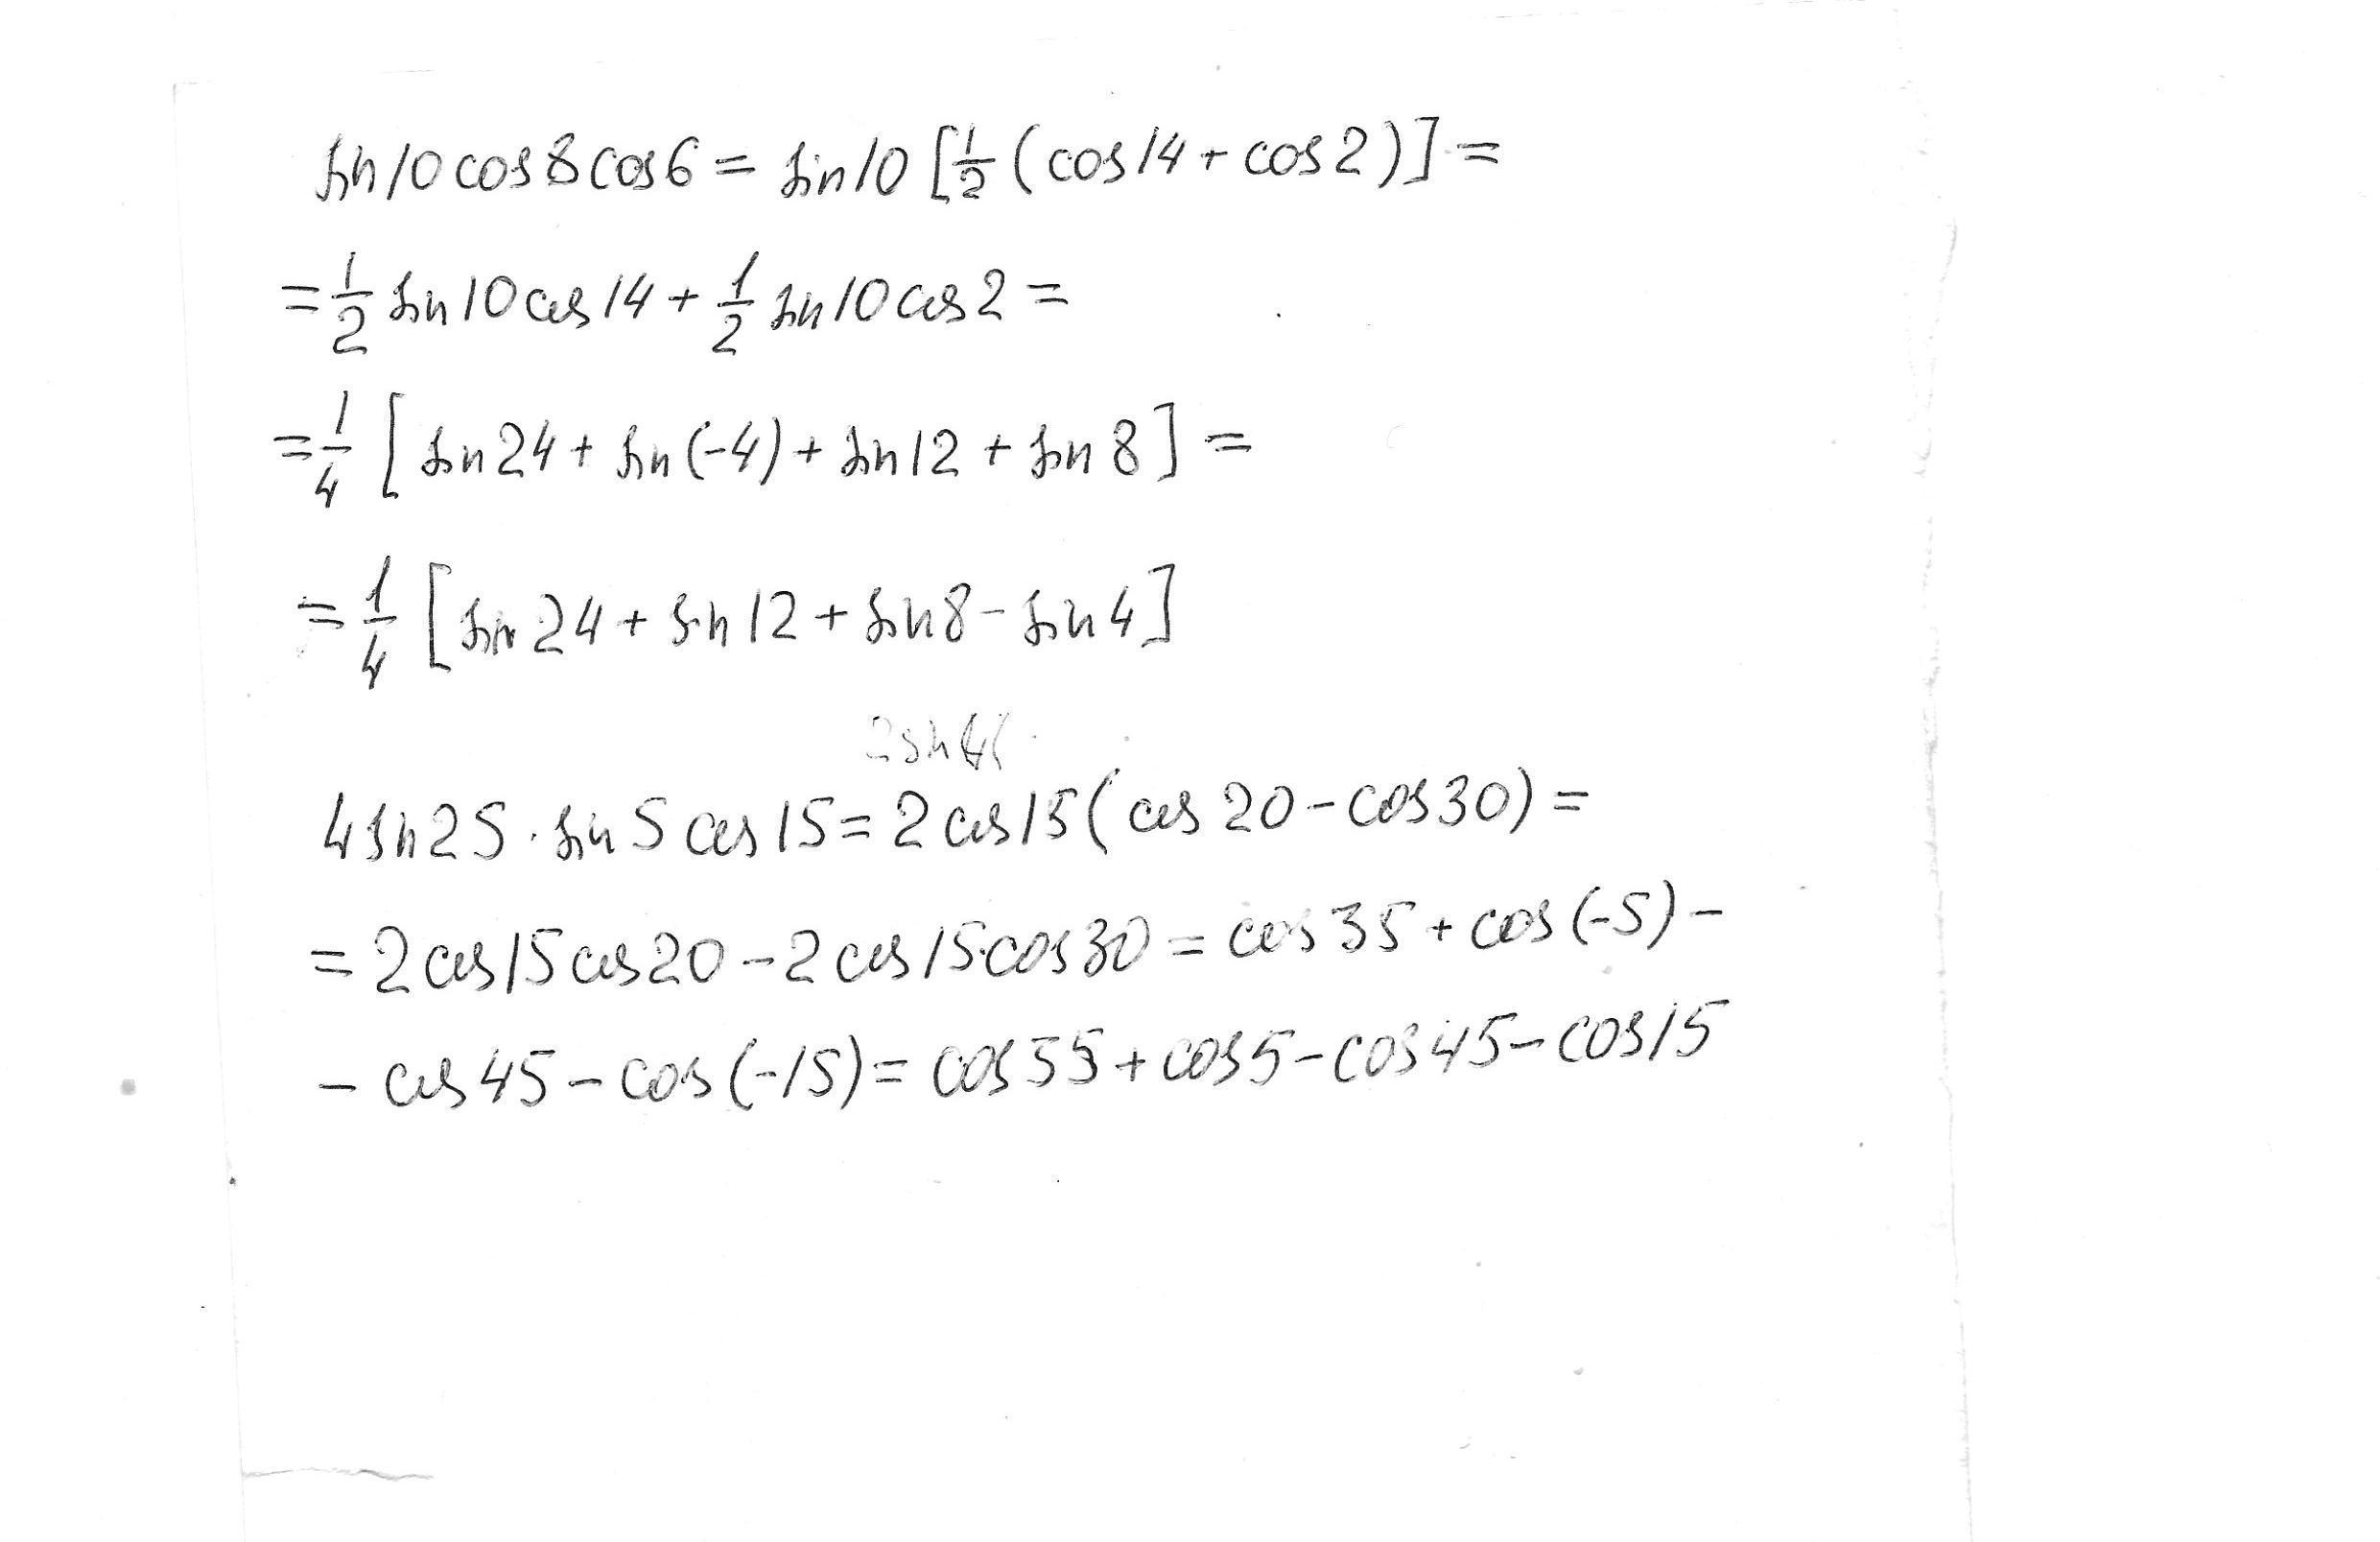 sin10cos8cos6 = sin10 [1/2 (cos14 + cos2)] =
= 1/2 sin10cos14 + 1/2 sin10cos2 =
= 1/4 [sin24 + sin(-4) + sin12 + sin8] =
= 1/4 [sin24 + sin12 + sin8 - sin4]
4sin25·sin5cos15 = 2cos15(cos20 - cos30) =
= 2cos15cos20 - 2cos15·cos30 = cos35 + cos(-5) -
- cos45 - cos(-15) = cos35 + cos5 - cos45 - cos15